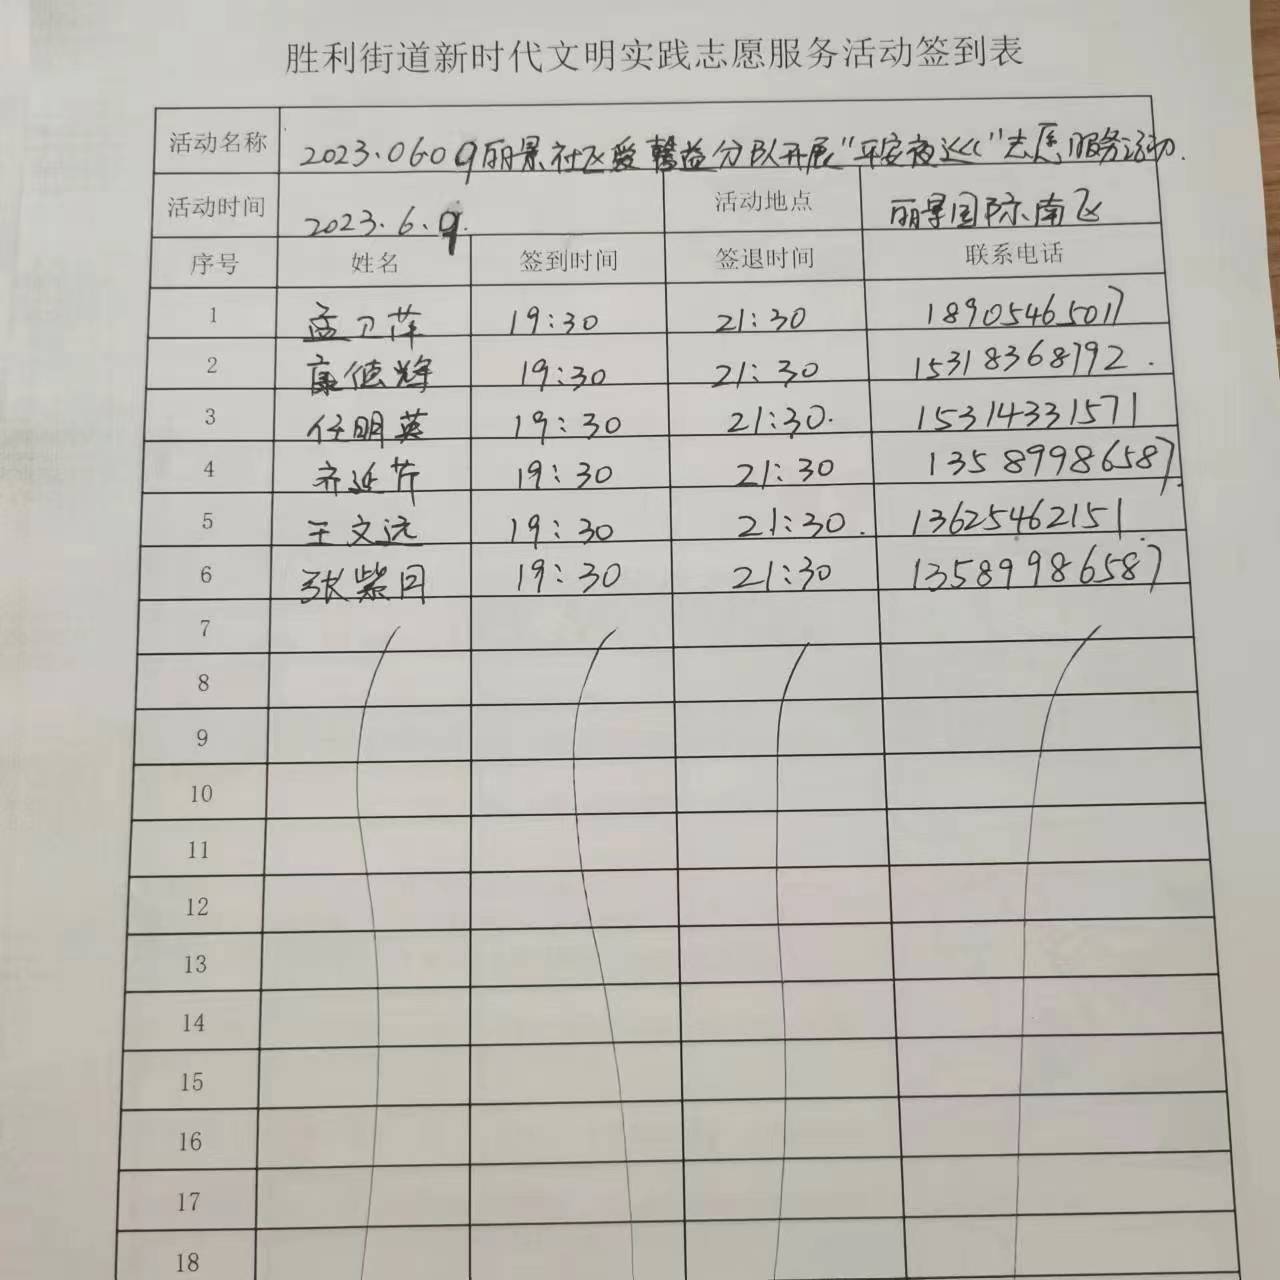 胜利街道新时代文明实践志愿服务活动签到表
活动名称 2023.0609丽景社区爱馨益分队开展“平安夜巡”志愿服务活动.
活动时间 2023.6.9. 活动地点 丽景国际南区
序号 姓名 签到时间 签退时间 联系电话
1 孟卫萍 19:30 21:30 18905465017
2 康德辉 19:30 21:30 15318368792.
3 任明英 19:30 21:30. 15314331571
4 齐延芹 19:30 21:30 13589986587.
5 王文远 19:30 21:30. 13625462151.
6 张紫月 19:30 21:30 13589986587
7
8
9
10
11
12
13
14
15
16
17
18